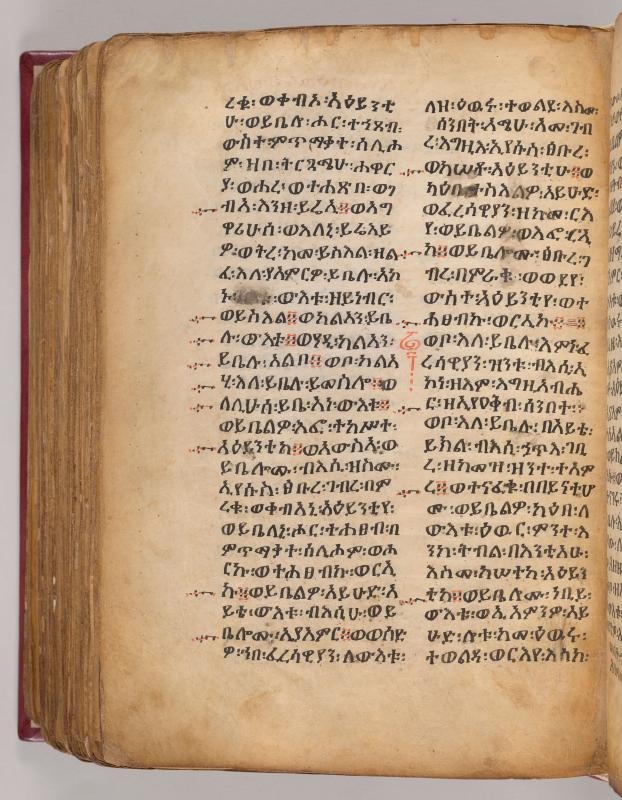 ረቁ፡ወቀብኦ፡አዕይንቲ
ሁ፡ወይቤሉ፡ሖር፡ተኀጸብ፡
ውስተ፡ምጥማቃተ፡ሰሊሖ
ም፡ዝ በ፡ትርጓሜሁ፡ሐዋር
ያ፡ወሖረ፡ወተሐጸበ፡ወገ
ብአ፡እንዘ፡ይሬኢ፡፡ወእግ
ዋሪሁሰ፡ወእለኒ፡ይሬእይ
ዎ፡ወትረ፡ከመ፡ይስእል፡ዘል
ፈ፡እለ፡ያአምርዎ፡ይቤሉ፡አኮ
ኑ፡ ውእቱ፡ዘይነብር፡
ወይስእል፡፡ወከልኣን፡ይቤ
ሉ፡ውእቱ፡፡ወቦ፡ከልኣን፡
ይቤሉ፡አልቦ፡፡ወቦ፡ካልኣ
ኒ፡እለ፡ይቤሉ፡ይመስሎ፡፡ወ
ለሊሁሰ፡ይቤ፡አነ፡ውእቱ፡፡
ወይቤልዎ፡እፎ፡ተከሥተ፡
አዕይንቲከ፡፡ወአውሥአ፡ወ
ይቤሎሙ፡ብእሲ፡ዘስሙ፡
ኢየሱስ፡ፅቡረ፡ገብረ፡በም
ረቁ፡ወቀብአኒ፡አዕይንቲየ፡
ወይቤለኒ፡ሖር፡ተሐፀብ፡በ
ምጥማቃተ፡ሰሊሖም፡ወሖ
ርኩ፡ወተሐፀብኩ፡ወርኢ
ኩ፡፡ወይቤልዎ፡አይሁድ፡አ
ይቴ፡ውእቱ፡ብእሲሁ፡ወይ
ቤሎሙ፡ኢያአምር፡፡ወወሰድ
ዎ፡ኀበ፡ፈረሳዊያን፡ለውእቱ፡
ለዘ፡ዕዉሩ፡ተወልደ፡እስመ፡
ሰንበት፡አሜሁ፡አመ፡ገብ
ረ፡እግዚእ፡ኢየሱስ፡ፅቡረ፡
ወከሠቶ፡አዕይንቲሁ፡፡ወ
ካዕበ፡ተስእልዎ፡አይሁድ፡
ወፈረሳዊያን፡ዘከመ፡ርእ
የ፡ወይቤልዎ፡ወእፎ፡ርኢ
ከ፡፡ወይቤሎሙ፡ፅቡረ፡ገ
ብረ፡በምራቁ፡ወወደየ፡
ውስተ፡አዕይንቲየ፡ወተ
ሐፀብኩ፡ወርኢኩ፡፡
ወቦ፡እለ፡ይቤሉ፡እምነ፡ፈ
ረሳዊያን፡ዝንቱ፡ብእሲ፡ኢ
ኮነ፡ዘእም፡እግዚአብሔ
ር፡ዘኢየዐቅብ፡ሰንበተ፡
ወቦ፡እለ፡ይቤሉ፡በእይቴ፡
ይክል፡ብእሲ፡ኃጥእ፡ገቢ
ረ፡ዘከመዝ፡ዝንተ፡ተአም
ረ፡፡ወተናፈቁ፡በበይናቲሆ
ሙ፡ወይቤልዎ፡ካዕበ፡ለ
ውእቱ፡ዕዉር፡ምንተ፡አ
ንከ፡ትብል፡በእንቲአሁ፡
እስመ፡ከሠተከ፡አዕይን
ቲከ፡፡ወይቤሎሙ፡ነቢይ፡
ውእቱ፡ወኢአምንዎ፡አይ
ሁድ፡ሎቱ፡ከመ፡ዕዉሩ፡
ተወልደ፡ወርእየ፡እስከ፡